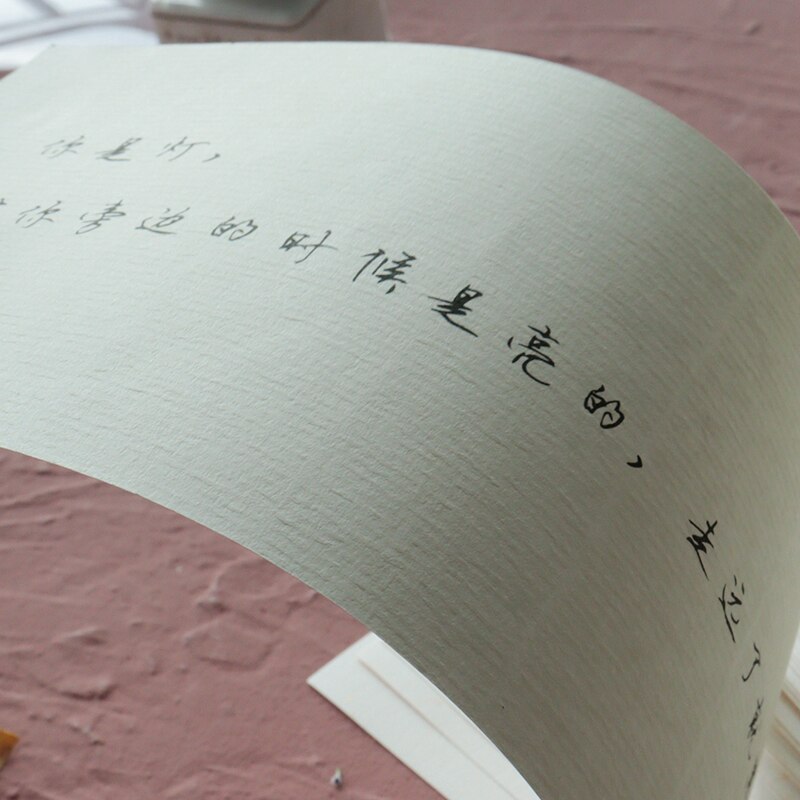 你是灯，
你旁边的时候是亮的，走远了